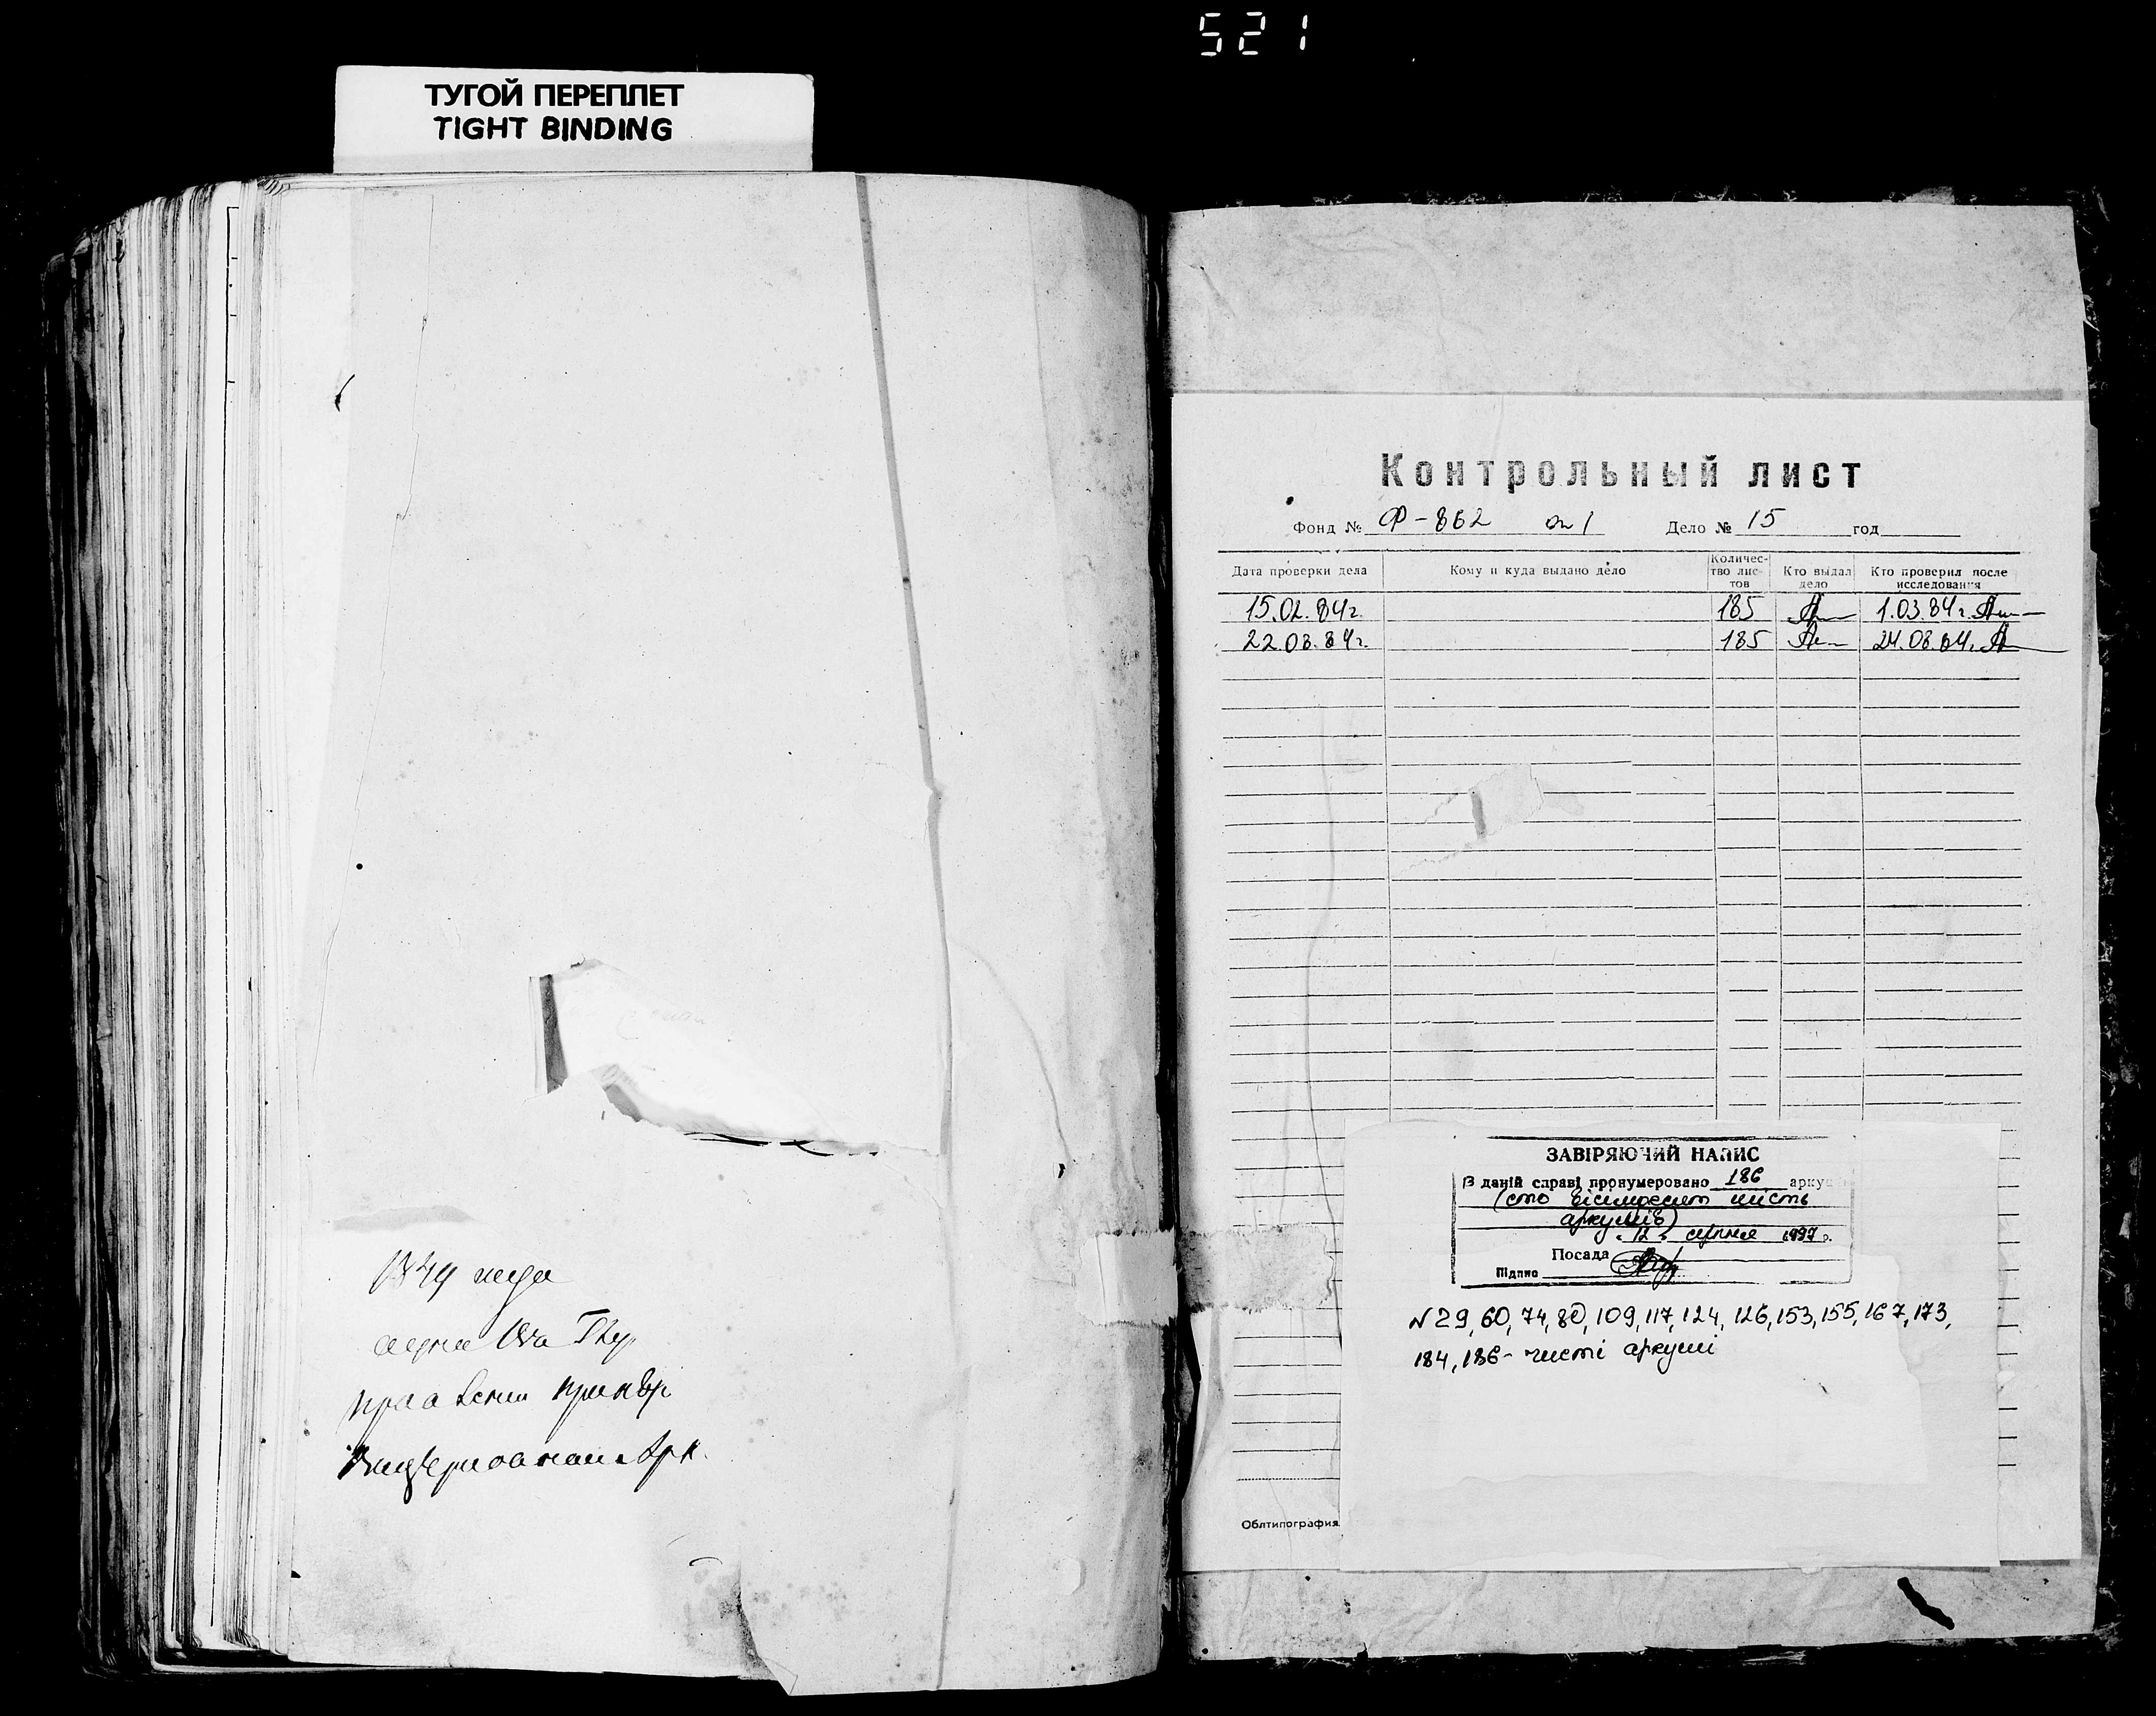 521
ТУГОЙ ПЕРЕПЛЕТ
TIGHT BINDING
1849 года
Контрольный лист
Фонд № Ф-862 оп 1 Дело № 15 год
Дата проверки дела
Кому и куда выдано дело
Количес-
тво лис-
тов
Кто выдал
дело
Кто проверил после
исследования
15.02.84г. 185 1.03.84г.
22.03.84г. 185 24.03.84г.
ЗАВІРЯЮЧИЙ НАПИС
В даній справі пронумеровано 186 арку
(сто вісімдесят шість
аркушів)
"12" серпня 1997 р.
Посада
Підпис
N 29, 60, 74, 80, 109, 117, 124, 126, 153, 155, 167, 173,
184, 186 - чисті аркуші
Облтипография